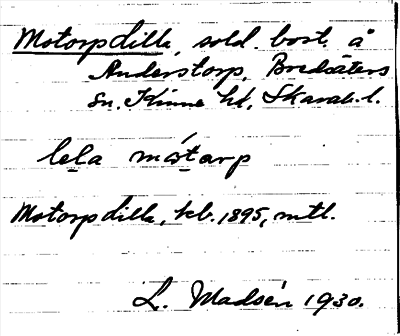 Motorpdilla, sold. bost. å
Anderstorp, Bredsäters
sn, Kinne hd, Skarab. l.
lela mótarp
Motorpdilla, kb. 1895, mtl.
L. Madsén 1930.